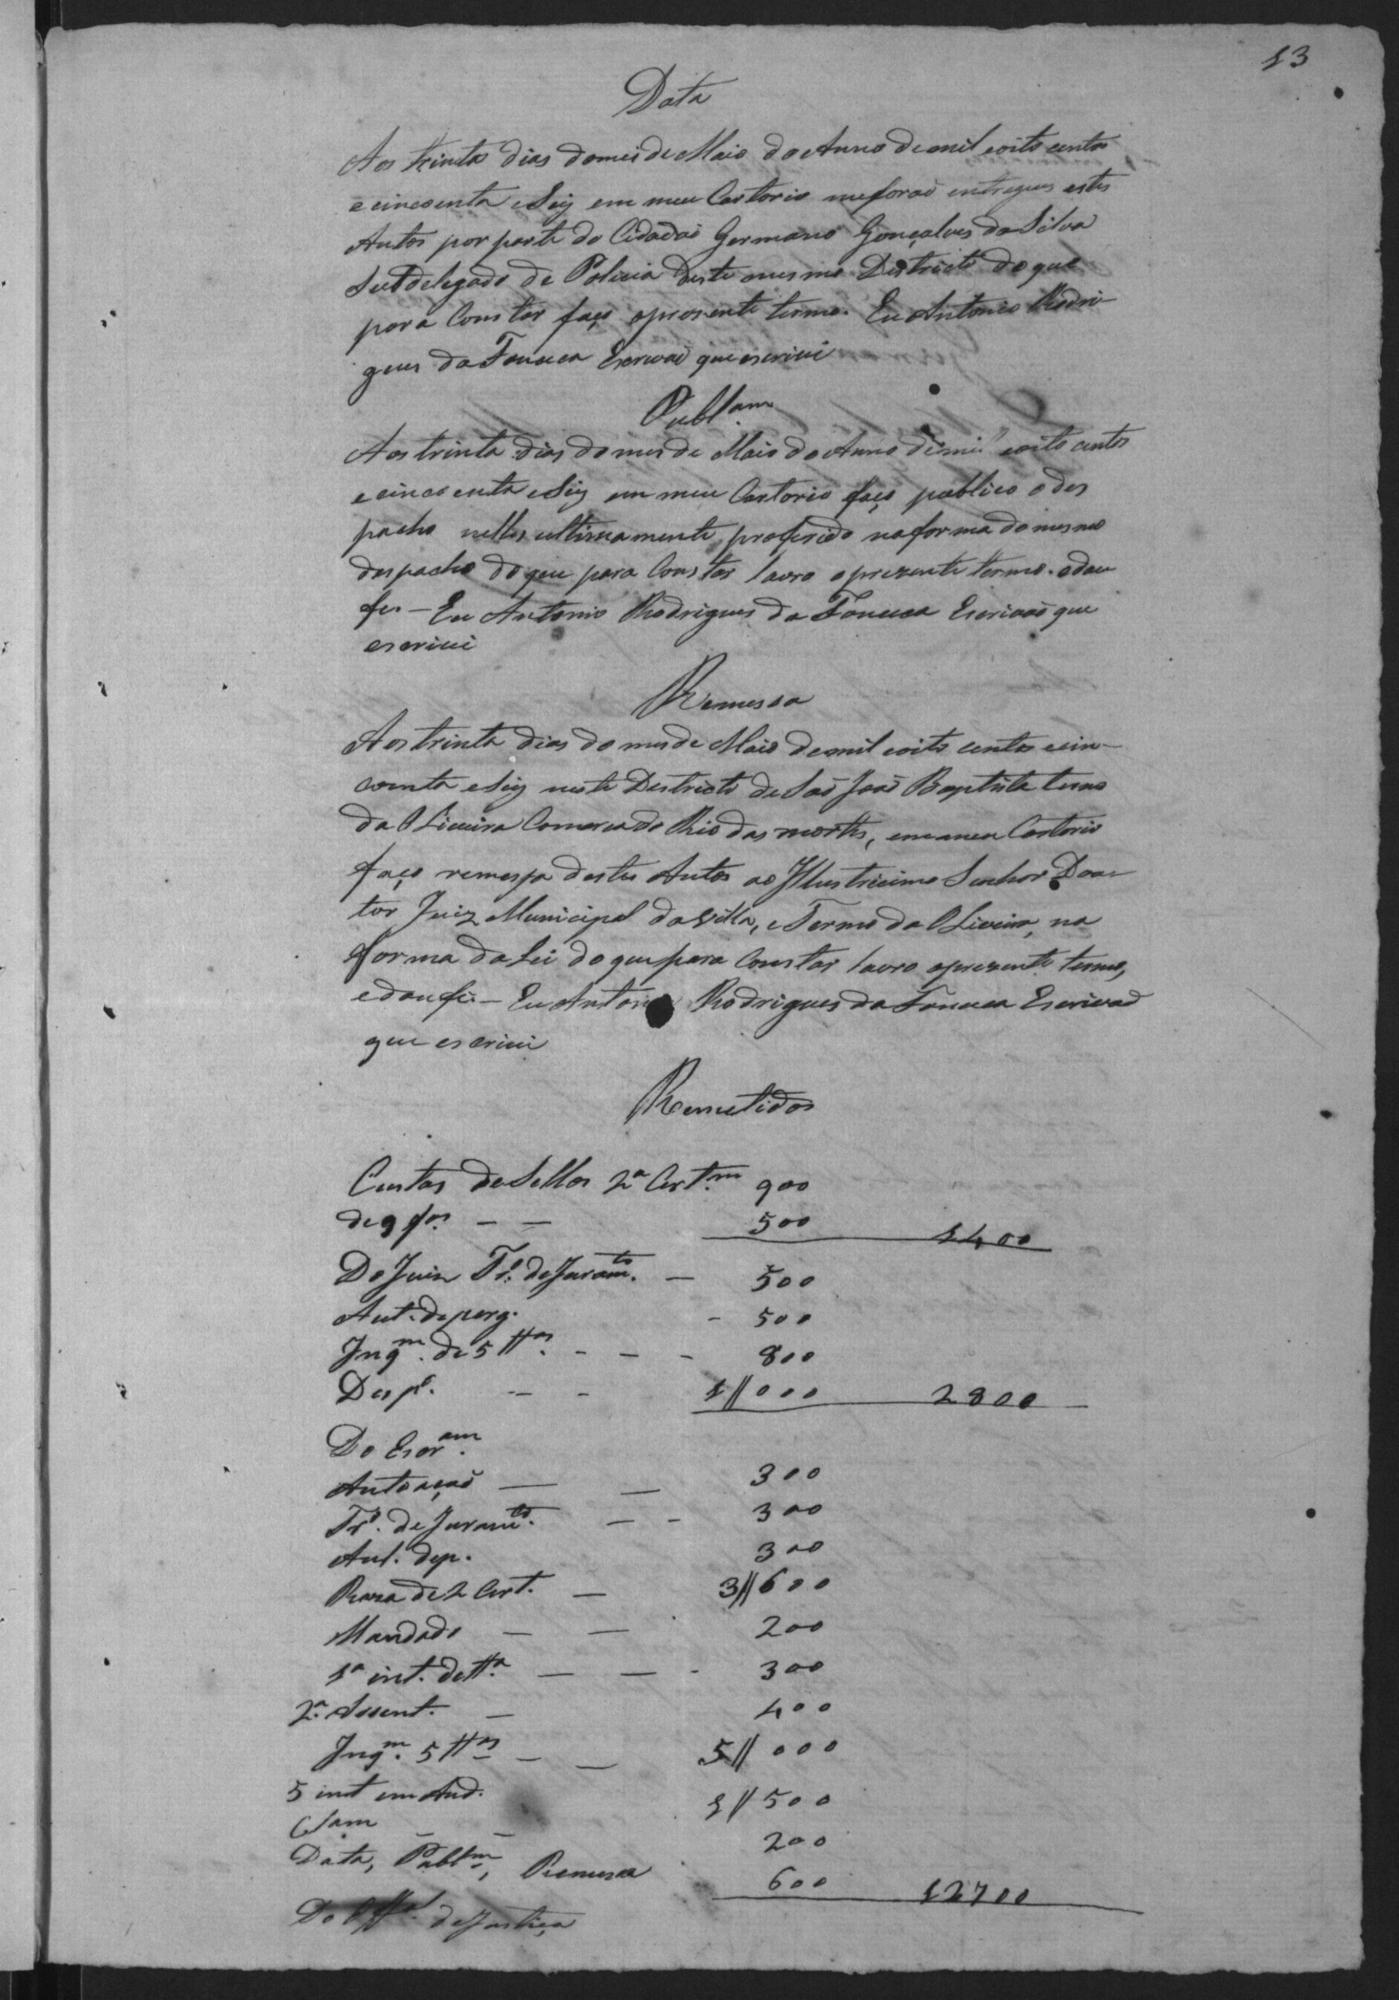 13
Data
Aos trinta dias do mes de Maio do Anno de mil eoito centos
e cincoenta e Seiz em meu Cartorio me foraõ entregues estes
Autos por parte do Cidadaõ Germano Gonçalves da Silva
Subdelegado de Policia deste mesmo Districto do que
para Constar faço opresente termo. Eu Antonio Rodri
gues da Fonceca Escrivaõ que escrivi
Publ.am
Aos trinta dias do mes de Maio do Anno de mil eoito centos
e cincoenta e Seiz em meu Cartorio faço publico o des
pacho nelles ultimamente proferido na forma do mesmo
despacho do que para Constar lavro o prezente termo. e dou
fe. — Eu Antonio Rodrigues da Fonceca Escrivaõ que
escrivi
Remessa
Aos trinta dias do mes de Maio de mil eoito centos e cin-
coenta e Seiz neste Destricto de Saõ Joaõ Baptista termo
da Oliveira Comarca do Rio das mortes, em meu Cartorio
faço remessa destes Autos ao Illustricimo Senhor Dou
tor Juiz Municipal da Villa, e Termo da Oliveira, na
forma da Lei do que para Constar lavro o prezente termo,
e dou fe. — Eu Antonio Rodrigues da Fonceca Escrivaõ
que escrivi
Remetidos
Custas de Sellos 2ª Cert.m 900
de 9 f.as — — 500 1400
Do Juiz T.º de Juram.to — 500
Aut. de perg. - 500
Inq.m de 5 tt.as - — - 800
Desp.º — - 1||000 2800
Do Escr.am
Autoaçaõ — — 300
Tr.º de Juram.to — - 300
Aut. de p. 300
Raza de 2 Cert. — 3||600
Mandado — — 200
1ª int. de tt.ª — — - 300
2.ª Assent. — 400
Inq.m 5 tt.as — — 5||000
5 int em Aud. 1||500
Clam — — 200
Data, Publ.m, Remessa 600 12700
Do Off.al de Justiça